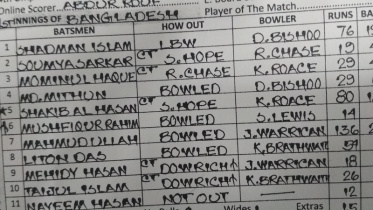 Online Scorer ABDUR ROUF
1st INNINGS OF BANGLADESH Player of The Match
BATSMEN HOW OUT BOWLER RUNS BA
1 SHADMAN ISLAM LBW D.BISHOO 76
2 SOUMYA SARKAR CT S.HOPE R.CHASE 19
3 MOMINUL HAQUE CT R.CHASE K.ROACE 29
4 MD.MITHUN BOWLED D.BISHOO 29
5 SHAKIB AL HASAN CT S.HOPE K.ROACE 80
6 MUSHFIQUR RAHIM BOWLED S.LEWIS 14
7 MAHMUDULLAH BOWLED J.WARRICAN 136
8 LITON DAS BOWLED K.BRATHWAIT
9 MEHIDY HASAN CT DOWRICH↑ J.WARRICAN 18
10 TAIJUL ISLAM CT DOWRICH↑ K.BRATHWAIT 26
11 NAYEEM HASAN NOT OUT — 12
Wides Extras 15